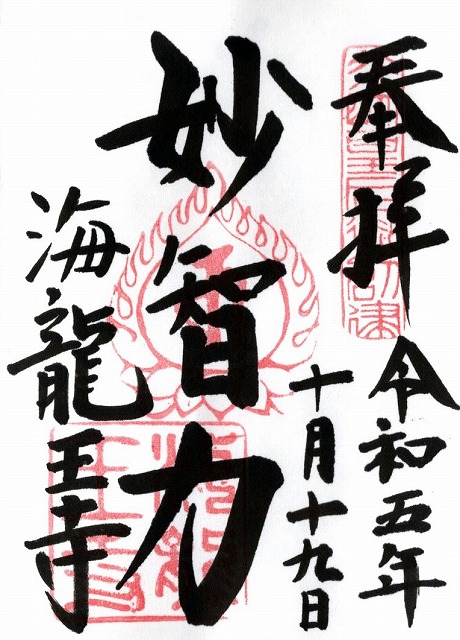 奉拝
令和五年
十月十九日
妙智力
海龍王寺